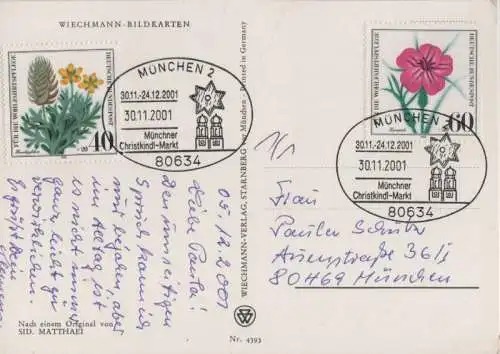 WIECHMANN-BILDKARTEN
FÜR DIE WOHLFAHRTSPFLEGE
DEUTSCHE BUNDESPOST
40
MÜNCHEN 2
30.11.-24.12.2001
30.11.2001
Münchner
Christkindl-Markt
80634
FÜR DIE WOHLFAHRTSPFLEGE
DEUTSCHE BUNDESPOST
60
MÜNCHEN 2
30.11.-24.12.2001
30.11.2001
Münchner
Christkindl-Markt
80634
1/1
05.12.2001
Liebe Paula!
Den umseitigen
Spruch kann ich
nur bejahen, aber
im Alltag ist
es nicht immer
ganz leicht zu
verwirklichen.
Es grüßt Dein
Nach einem Original von
SID. MATTHAEI
WIECHMANN-VERLAG, STARNBERG bei München · Printed in Germany
Nr. 4393
Frau
Paula
Auenstraße 36/
80469 München